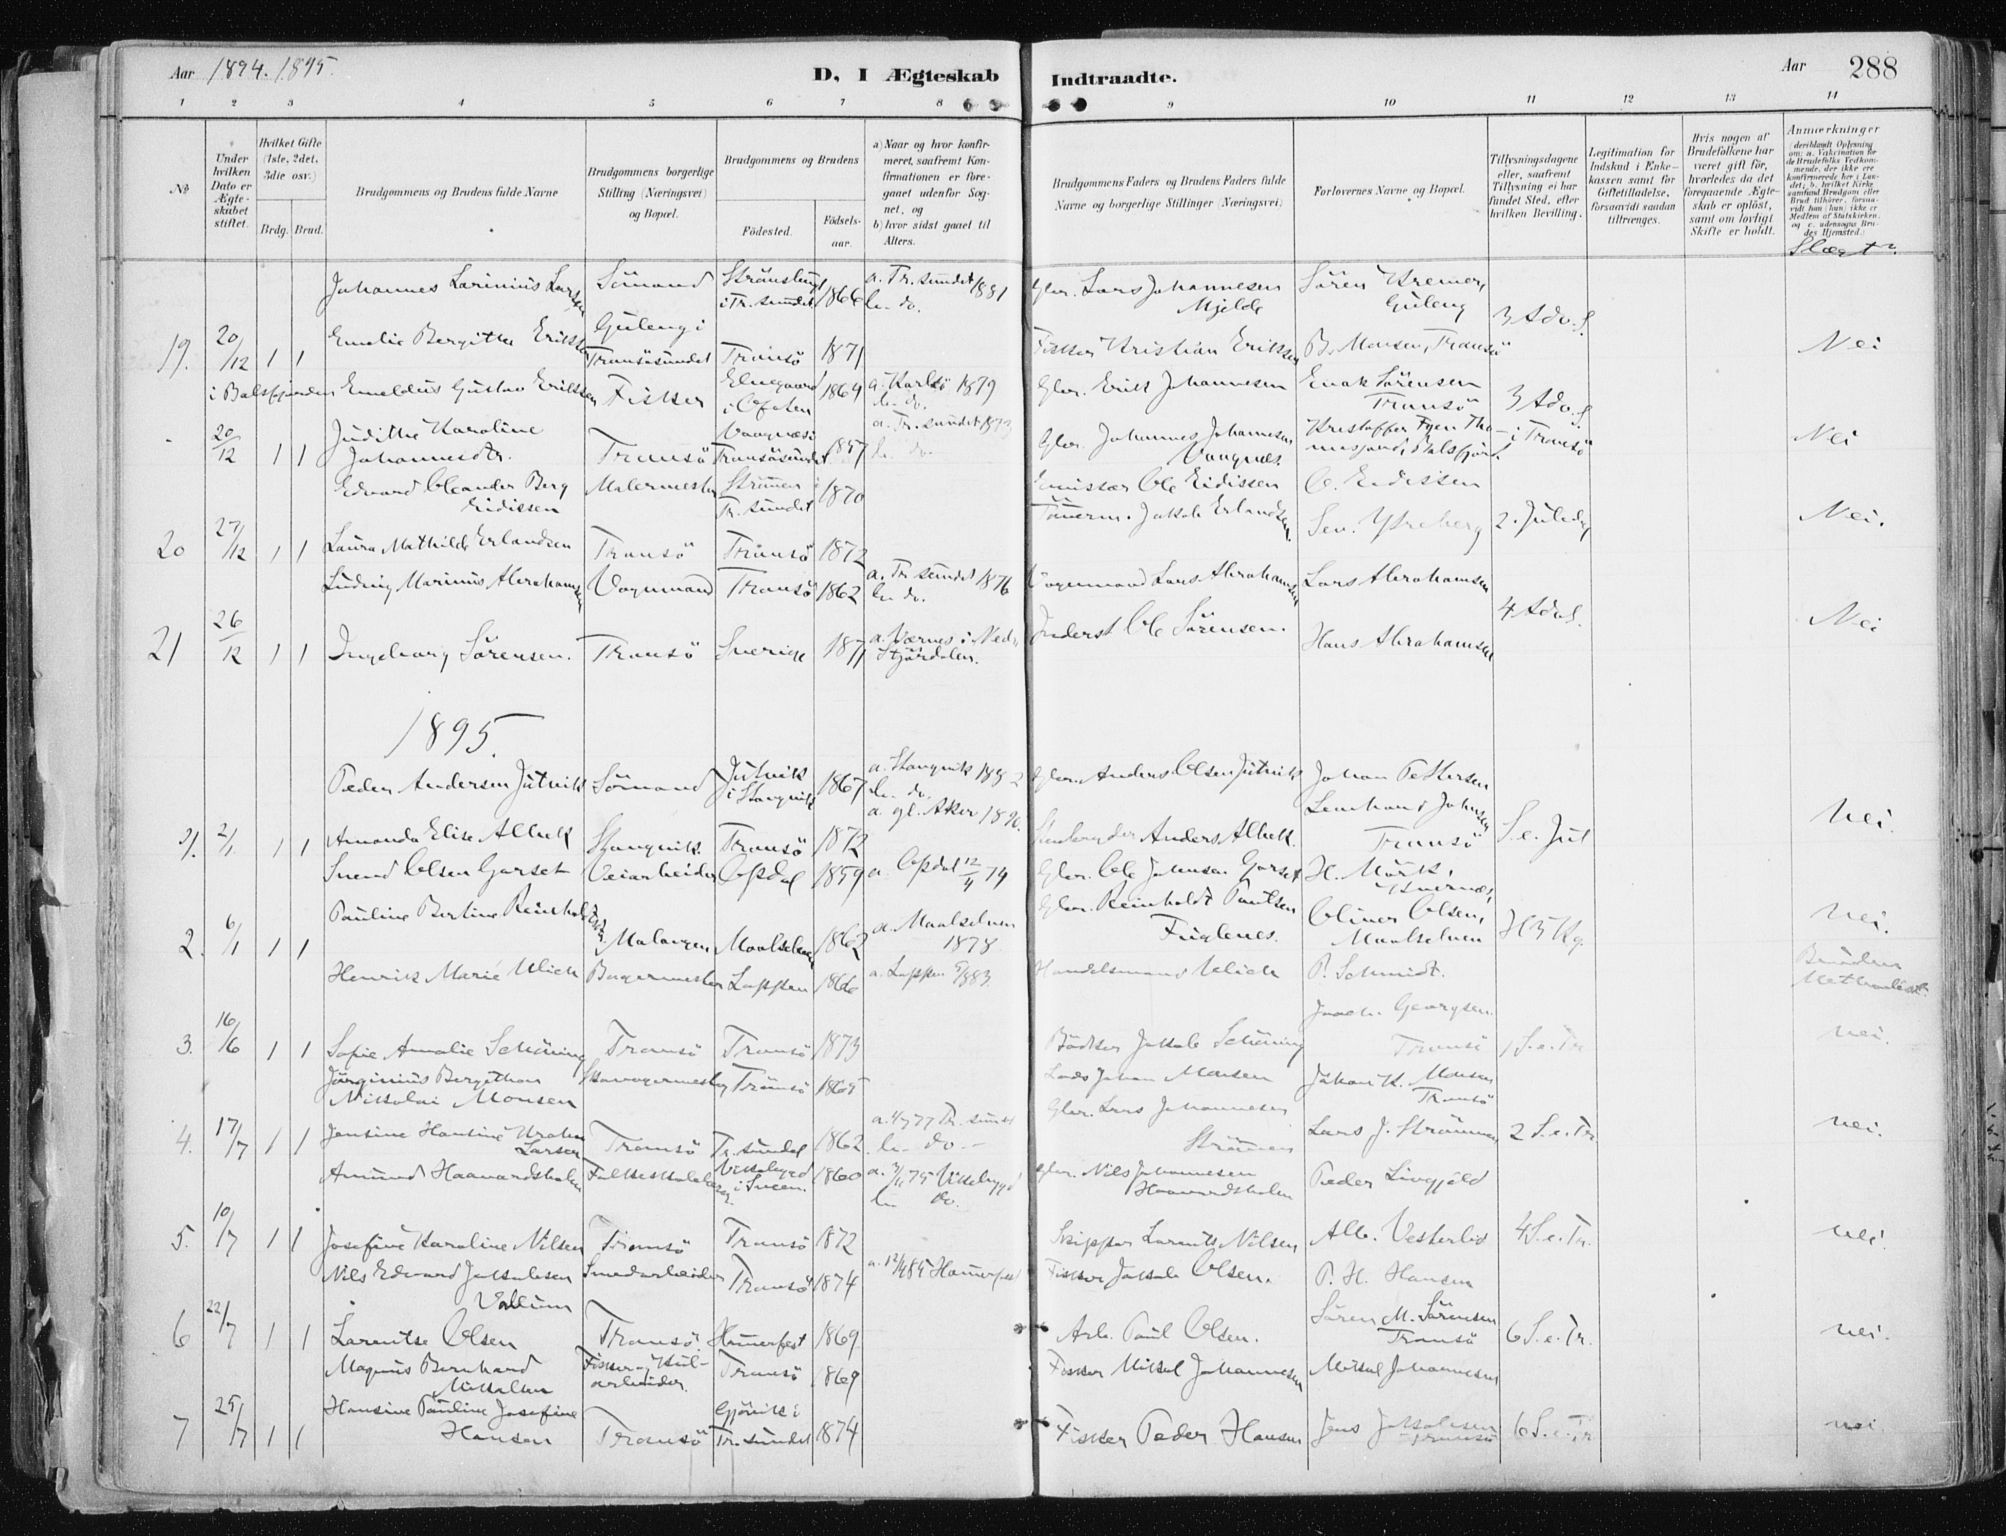 Aar 1894. 1895.
D, I Ægteskab Indtraadte.
Aar 288
1 2 3 4 5 6 7 8 9 10 11 12 13 14
No
Under hvilken Dato er Ægteskabet stiftet.
Hvilket Gifte (1ste, 2det, 3die osv.)
Brdg. Brud.
Brudgommens og Brudens fulde Navne
Brudgommens borgerlige Stilling (Næringsvei) og Bopæl.
Brudgommens og Brudens
Fødested. Fødselsaar.
a) Naar og hvor konfirmeret, saafremt Konfirmationen er foregaaet udenfor Sognet, og
b) hvor sidst gaaet til Alters.
Brudgommens Faders og Brudens Faders fulde Navne og borgerlige Stillinger (Næringsvei)
Forlovernes Navne og Bopæl.
Tillysningsdagene eller, saafremt Tillysning ei har fundet Sted, efter hvilken Bevilling.
Legitimation for Indskud i Enkekassen samt for Giftetilladelse, forsaavidt saadan tiltrænges.
Hvis nogen af Brudefolkene har været gift før, hvorledes da det foregaaende Ægteskab er opløst, samt om lovligt Skifte er holdt.
Anmærkninger (deriblandt Oplysning om: a. Vakcination for de Brudefolks Vedkommende, der ikke ere konfirmerede her i Landet; b. hvilket Kirkesamfund Brudgom eller Brud tilhører, forsaavidt han (hun) ikke er Medlem af Statskirken, og c. udensogns Brudes Hjemsted.)
Slægt?
Johannes Larinius Larsen Sömand i Tr. sundet 1866 a. Tr. sundet 1881 b. do. Gbr. Lars Johannesen Mjelde Sören Kremer, Guleng
3 Adv. S.
19. 20/12 1 1 Emelie Bergitte Eriksen Guleng i Tromsösundet Tromsö 1871 Fisker Kristian Eriksen B. Monsen, Tromsö Nei
i Balsfjorden Emeldus Gustav Eriksen Fisker i Ofoten 1869 a. Karlsö 1879 b. do. Gbr. Erik Johannesen Enok Sörensen Tromsö 3 Adv. S.
20/12 1 1 Judithe Karoline Johannesdtr. Tromsö Vaagnæs i Tromsösundet 1857 a. Tr. sundet 1873 b. do. Gbr. Johannes Johannesen Vaagnæs. i Tromsö Nei
Edvard Oleander Berg Eidissen Malermester Strömmen i Tr. sundet 1870 Ole Eidissen O. Eidissen
20 27/12 1 1 Laura Mathilde Erlandsen Tromsö Tromsö 1872 Jakob Erlandsen. Sev. Ytreberg 2. Juledag Nei.
Ludvig Marinius Abrahamsen Vognmand Tromsö 1862 a. Tr. sundet 1876 b. do. Vognmand Lars Abrahamsen Lars Abrahamsen
4 Adv S.
21 26/12 1 1 Ingeborg Sörensen. Tromsö Sverige 1871 a. Værnes i Nedr. Stjördalen. Inderst Ole Sörensen. Hans Abrahamsen Nei
1895.
Peder Andersen Jutvik Sömand Jutvik i Stangvik 1867 a. Stangvik 1882 b. do. Gbr. Anders Olsen Jutvik Johan Pettersen
1. 2/1. 1 1 Amanda Elise Albek Stangvik. Tromsö 1872 a. gl. Aker 1890. Anders Albek. Lenhard Johnsen Tromsö S. e. Jul Nei.
Svend Olsen Garset Veiarbeider Opdal 1859 a. Opdal 12/4 74 Gbr. Ole Johnsen Garset H. Mörk,
2. 6/1 1 1 Pauline Bertine Reinholdsen Malangen Maalselven 1862 a. Maalselven 1878. Gbr. Reinholdt Paulsen Fuglenes. Oliver Olsen, Maalselven H 3 Kg. Nei.
Henrik Marie Ulich Bagermester Loppen 1866 a. Loppen 1883. Handelsmand Ulich P. Schmidt. Bruden Methodist.
3. 16/6 1 1 Sofie Amalie Schöning Tromsö Tromsö 1873 Bödker Jakob Schöning Joach. Georgsen Tromsö 1 S. e. Tr nei.
Jörginius Bergithon Nikolai Monsen Skovogermester Tromsö 1865 Lods Johan Monsen Johan K. Monsen Tromsö
4. 17/7 1 1 Jensine Hansine Larsen Tromsö Tr. sundet 1862 a. 77 Tr. sundet b. do. Gbr. Lars Johannesen Strömmen Lars J. Strömmen 2 S. e. Tr nei.
Amund Haavardsholm Folkeskolelærer. Vikebygd i Sveen 1860 a. 75 Vikebygd b. do. Gbr. Nils Johannesen Haavardsholm Peder Livgjäld
5. 10/7 1 1 Josefine Karoline Nilsen Tromsö Tromsö 1872 Skipper Lorents Nilsen Alb. Vesterlid 4 S. e. Tr. nei.
Nils Edvard Jakobsen Vollum Smedarbeider Tromsö 1874 Fisker Jakob Olsen. P. H. Hansen
6 22/7 1 1 Larentse Olsen Tromsö. Hamerfest 1869. a. 12/4 85 Hamerfest Arb. Paul Olsen. Sören M. Sörensen Tromsö 6 S. e. Tr. nei.
Magnus Bernhard Mikalsen Fisker og Kularbeider. Tromsö 1869 Fisker Mikal Johannesen Mikal Johannesen
7 25/7 1 1 Hansine Pauline Josefine Hansen Tromsö Gjövik i Tr. sundet 1874 Fisker Peder Hansen Jens Jakobsen Tromsö 6 S. e. Tr nei